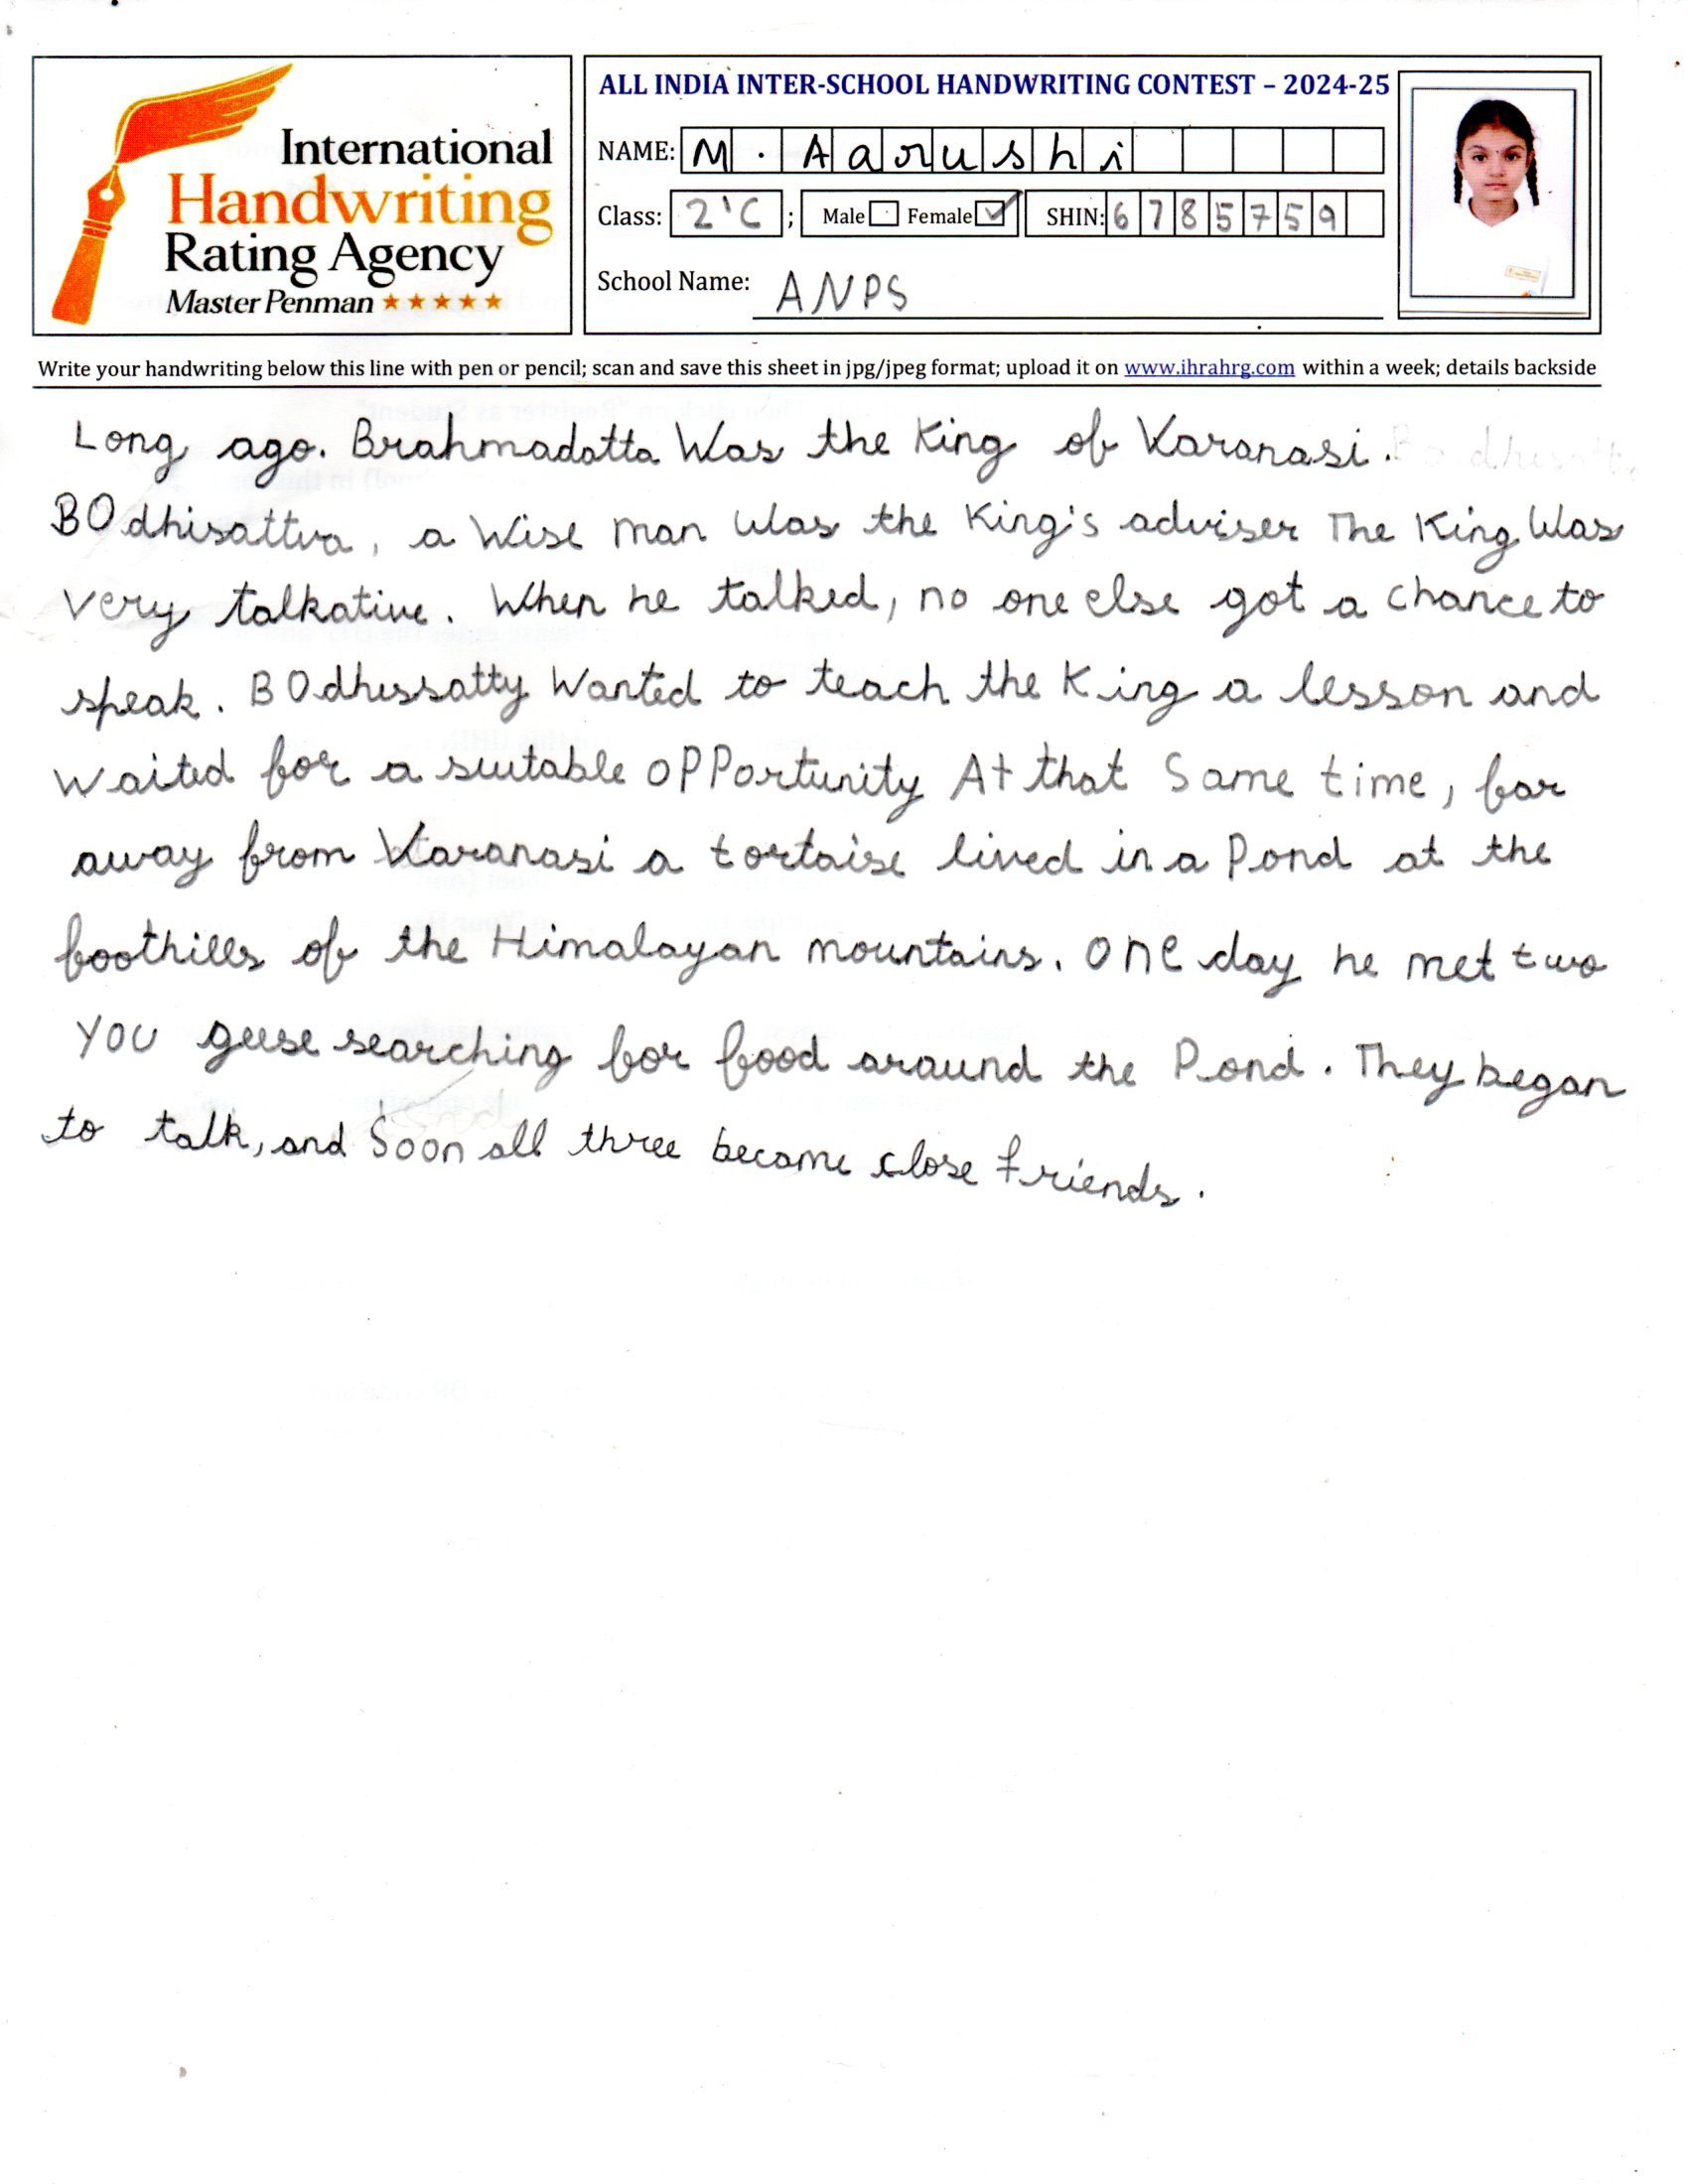 International
Handwriting
Rating Agency
Master Penman
ALL INDIA INTER-SCHOOL HANDWRITING CONTEST – 2024-25
NAME: M. Aarushi
Class: 2'C ; Male Female ✓ SHIN: 6785759
School Name: ANPS
Write your handwriting below this line with pen or pencil; scan and save this sheet in jpg/jpeg format; upload it on www.ihrahrg.com within a week; details backside
Long ago. Brahmadatta Was the King of Varanasi.
BOdhisattva, a Wise man Was the King's adviser The King Was
very talkative. When he talked, no one else got a chance to
speak. BOdhissatty Wanted to teach the King a lesson and
waited for a suitable oPPortunity At that Same time, far
away from Varanasi a tortaise lived in a Pond at the
foothills of the Himalayan mountains. One day he met two
YOU geese searching for food around the Pond. They began
to talk, and Soon all three become close friends.